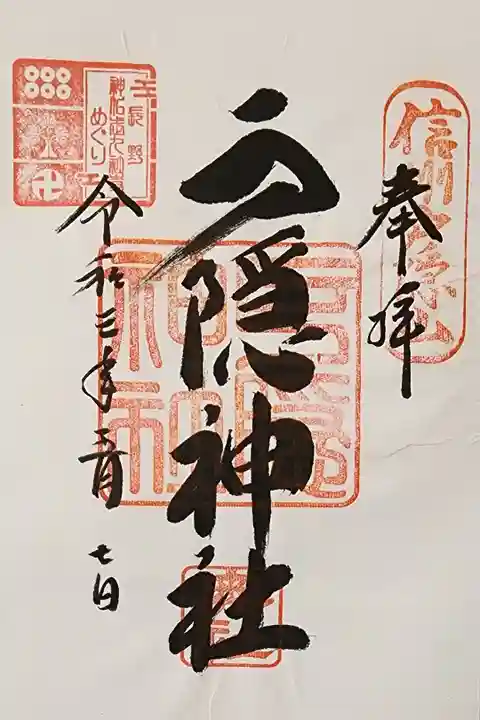 信州戸隠山
奉拝
戸隠神社
戸隠神社
長野
めぐり
令和三年 月 七日